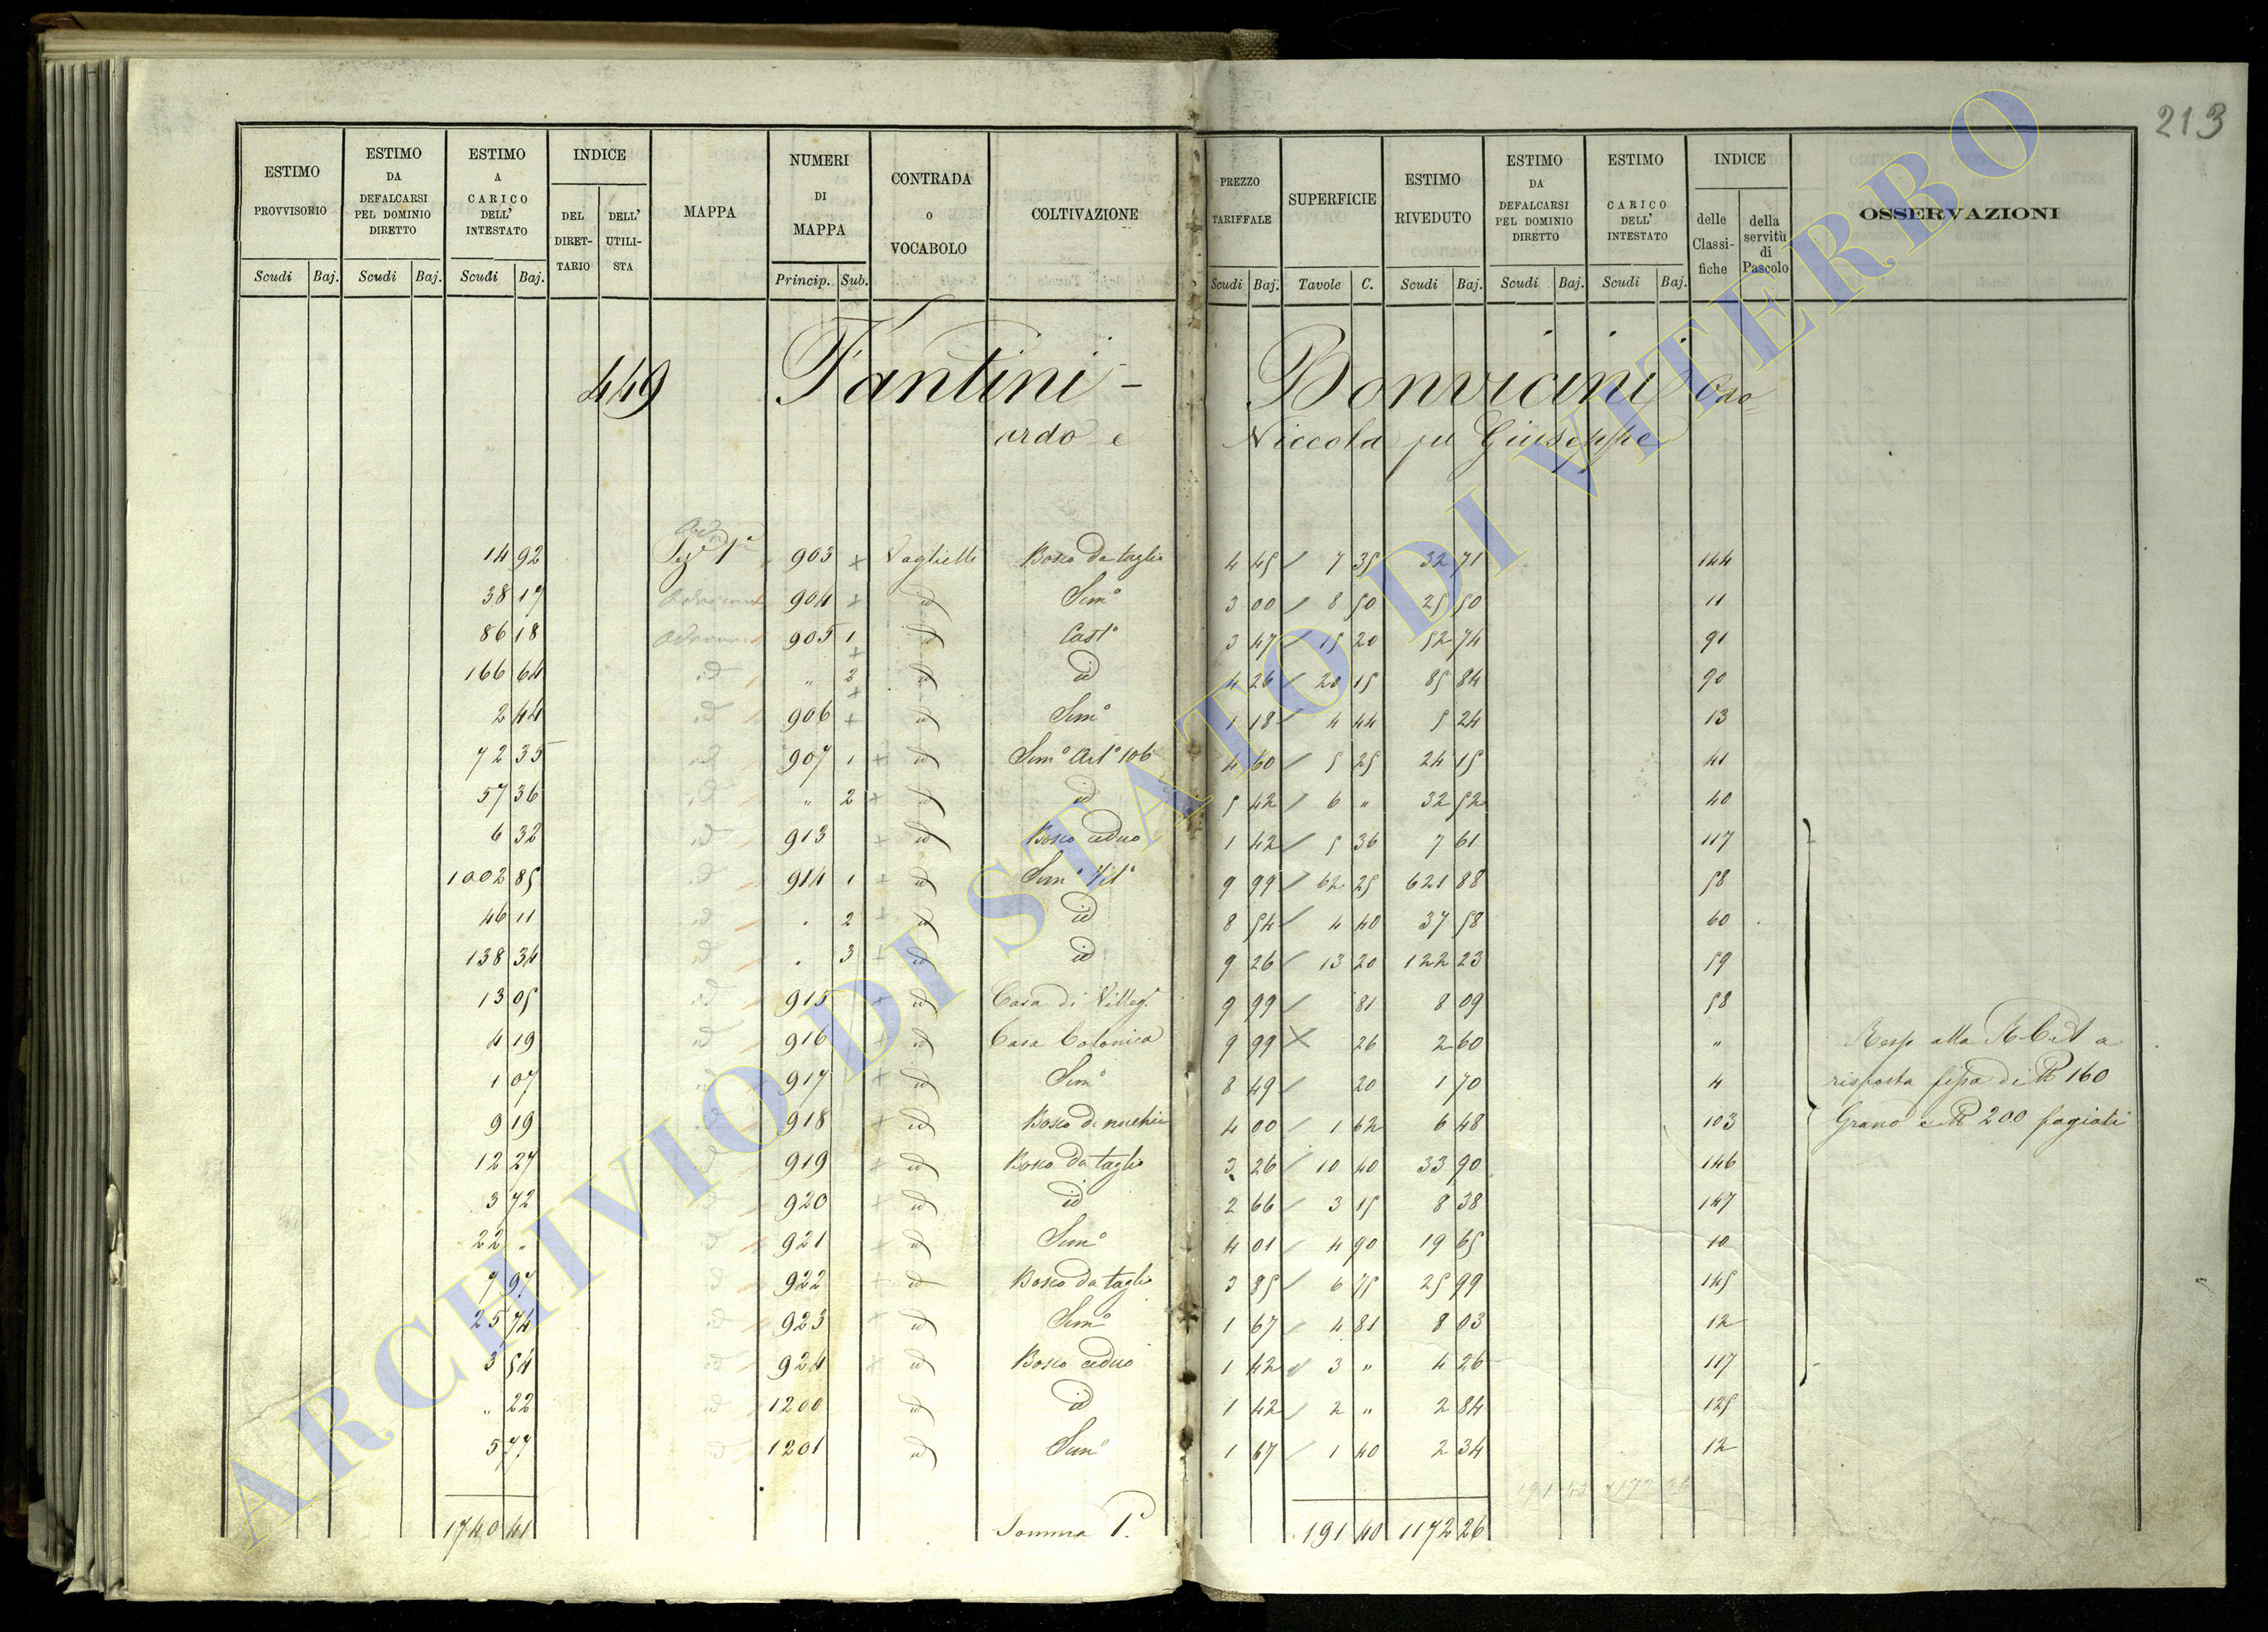 213
ESTIMO PROVVISORIO | ESTIMO DA DEFALCARSI PEL DOMINIO DIRETTO | ESTIMO A CARICO DELL' INTESTATO | INDICE DEL DIRETTARIO | DELL' UTILISTA | MAPPA | NUMERI DI MAPPA | CONTRADA O VOCABOLO | COLTIVAZIONE | PREZZO TARIFFALE | SUPERFICIE | ESTIMO RIVEDUTO | ESTIMO DA DEFALCARSI PEL DOMINIO DIRETTO | ESTIMO A CARICO DELL' INTESTATO | INDICE delle Classifiche | della servitù di Pascolo | OSSERVAZIONI
Scudi Baj. Scudi Baj. Scudi Baj. Princip. Sub. Scudi Baj. Tavole C. Scudi Baj. Scudi Baj. Scudi Baj.
449 Fantini - Bonvicini Odo
ardo e Niccola fu Giuseppe
14 92 Sez.e 1a 903 + Bosco da taglio 4 45 / 7 35 32 71 144
38 17 904 + id Sem.o 3 00 / 8 50 25 50 11
86 18 905 1 + id Cast.o 3 47 / 15 20 52 74 91
166 64 id " 2 + id id 4 26 / 20 15 85 84 90
2 44 id 906 + id Sem.o 1 18 / 4 44 5 24 13
72 35 id 907 1 + id Sem.o Art.o 106 4 60 / 5 25 24 15 41
57 36 id " 2 + id id 5 42 / 6 " 32 52 40
6 32 id 913 + id Bosco ceduo 1 42 / 5 36 7 61 117
1002 85 id 914 1 + id Sem.o Vit.o 9 99 / 62 25 621 88 58
46 11 id . 2 + id id 8 54 / 4 40 37 58 60
138 34 id . 3 + id id 9 26 / 13 20 122 23 59
13 05 id 915 + id Casa di Villeg.a 9 99 / 81 8 09 58
4 19 id 916 + id Casa Colonica 9 99 X 26 2 60 " alla
1 07 id 917 + id Sem.o 8 49 / 20 1 70 4 risposta di 160
9 19 id 918 + id Bosco da 4 00 / 1 62 6 48 103 Grano e 200 fagioli
12 27 id 919 + id Bosco da taglio 3 26 / 10 40 33 90 146
3 72 id 920 + id id 2 66 / 3 15 8 38 147
22 " id 921 + id Sem.o 4 01 / 4 90 19 65 10
7 97 id 922 + id Bosco da taglio 3 85 / 6 75 25 99 145
25 74 id 923 id Sem.o 1 67 / 4 81 8 03 12
3 54 id 924 + id Bosco ceduo 1 42 / 3 " 4 26 117
" 22 id 1200 id id 1 42 / 2 " 2 84 125
5 77 id 1201 id Sem.o 1 67 / 1 40 2 34 12
1740 41 Somma 191 40 1172 26
ARCHIVIO DI STATO DI VITERBO